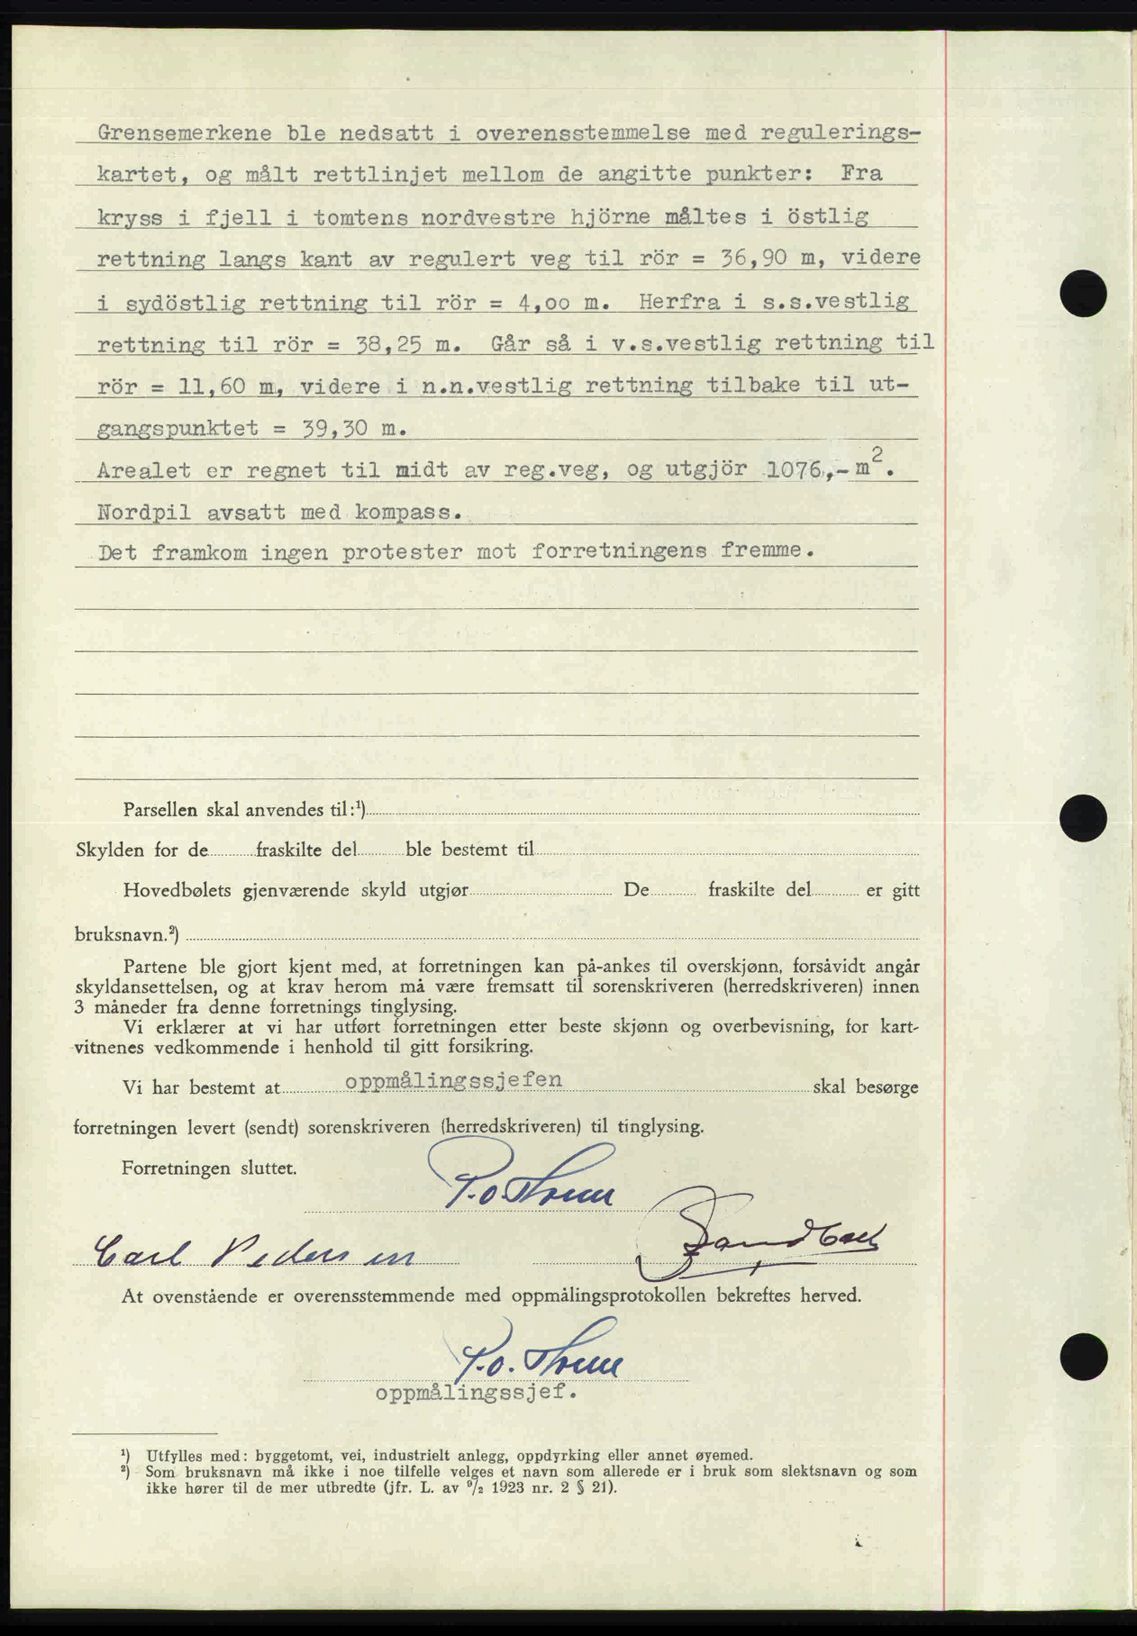 Grensemerkene ble nedsatt i overensstemmelse med regulerings-
kartet, og målt rettlinjet mellom de angitte punkter: Fra
kryss i fjell i tomtens nordvestre hjörne måltes i östlig
rettning langs kant av regulert veg til rör = 36,90 m, videre
i sydöstlig rettning til rör = 4,oo m. Herfra i s.s.vestlig
rettning til rör = 38,25 m. Går så i v.s.vestlig rettning til
rör = 11,60 m, videre i n.n.vestlig rettning tilbake til ut-
gangspunktet = 39,30 m.
Arealet er regnet til midt av reg.veg, og utgjör 1076,- m².
Nordpil avsatt med kompass.
Det framkom ingen protester mot forretningens fremme.
Parsellen skal anvendes til:¹)
Skylden for de fraskilte del ble bestemt til
Hovedbølets gjenværende skyld utgjør De fraskilte del er gitt
bruksnavn.²)
Partene ble gjort kjent med, at forretningen kan på-ankes til overskjønn, forsåvidt angår
skyldansettelsen, og at krav herom må være fremsatt til sorenskriveren (herredskriveren) innen
3 måneder fra denne forretnings tinglysing.
Vi erklærer at vi har utført forretningen etter beste skjønn og overbevisning, for kart-
vitnenes vedkommende i henhold til gitt forsikring.
Vi har bestemt at oppmålingssjefen skal besørge
forretningen levert (sendt) sorenskriveren (herredskriveren) til tinglysing.
Forretningen sluttet.
P.o. Thrum
Carl Pedersen
At ovenstående er overensstemmende med oppmålingsprotokollen bekreftes herved.
P.o. Thrum
oppmålingssjef.
¹) Utfylles med: byggetomt, vei, industrielt anlegg, oppdyrking eller annet øyemed.
²) Som bruksnavn må ikke i noe tilfelle velges et navn som allerede er i bruk som slektsnavn og som
ikke hører til de mer utbredte (jfr. L. av ⁹/₂ 1923 nr. 2 § 21).